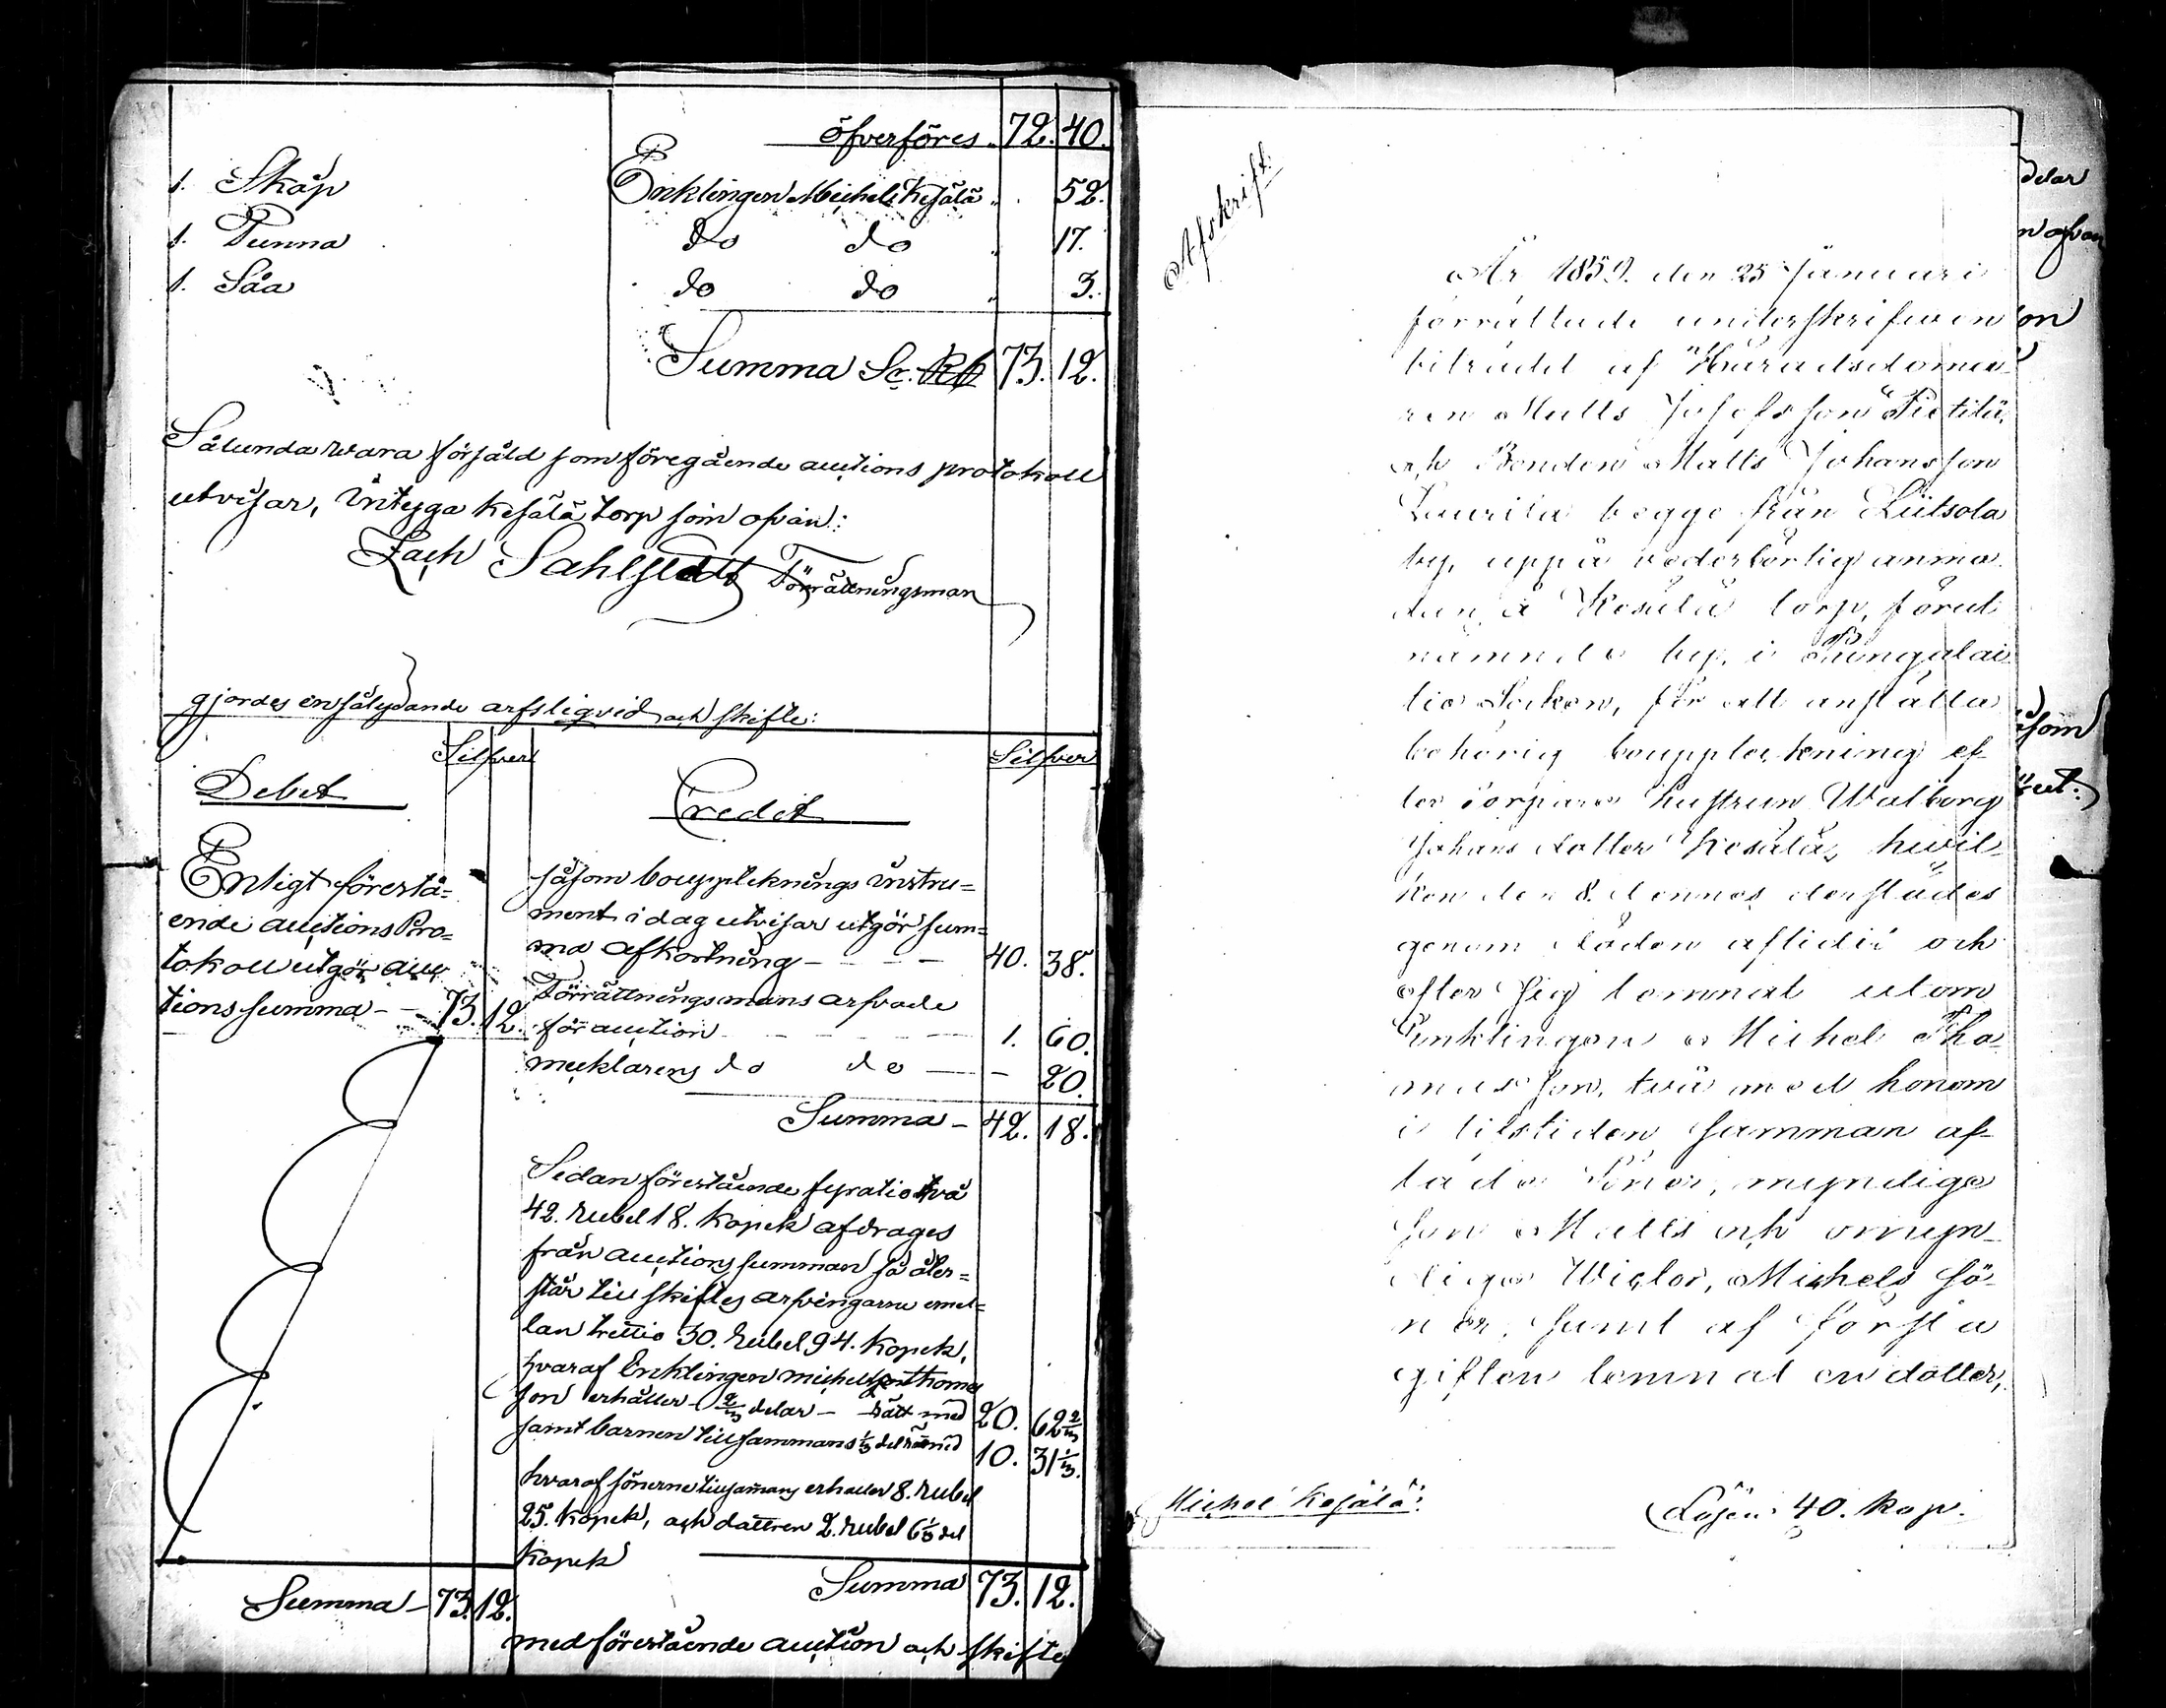 öfverföres. 72. 40.
1. Skåp Enklingen Michel Kesälä „ 52.
1. Tunna do do „ 17.
1. Såa do do „ 3.
Summa Sr. Rb 73. 12.
Sålunda wara försåld som föregående auctions protokoll
utvisar, intyga Kesälä torp som ofvan:
Zach Sahlstedt Förrättningsman
gjordes ensålydande arfsliqvid och skifte:
Silfver Silfver
Debet Credit
Enligt förestå=
ende auctions Pro=
tokoll utgör auc
tions summa - - 73. 12.
såsom bouppteknings instru=
ment i dag utvisar utgör sum=
ma afkortning - - - - 40. 38.
Förrättningsmans arfvode
för auction - - - - 1. 60.
mecklarens do do - - 20.
Summa - 42. 18.
Sedan förestående fyratio två
42. rubel 18. kopek afdrages
från auctions summan så åter=
står till skiftes arfvingarne emel=
lan trettio 30. rubel 94. kopek,
hvaraf Enklingen michel thomas
son erhåller 2/3 delar - rätt med 20. 62 2/3
samt barnen tillsammans 1/3 del med 10. 31 1/3.
hvaraf sönerne tillsamans erhåller 8. rubel
25. kopek, och dattren 2. rubel 6 1/3 del
kopek
Summa 73. 12.
Summa - 73. 12.
med förestående auction och skifte
Afskrift.
År 1859. den 25 Januari
förrättade underskrifven
biträdd af Häradsdomar
ren Matts Josefsson Pietilä,
och Bonden Matts Johansson
Laurila begge från Liitsola
by, uppå vederbörlig anmo
dan å Kesälä torp, förut
nämnde by, i Pungalai
tio Socken, för att anställa
behörig bouppteckning ef
ter torpare hustrun Walborg
Johans dotter Kesälä, hvil
ken den 8. dennes derstädes
genom döden aflidit och
efter sig lemnat utom
Enklingen Michel Tho
masson, två med honom
i tilstiden samman af
lade Söner, myndige
son Matts och omyn
dige Victor, Michels sö
ner, samt af första
giften lemnat en dotter,
Michel Kesälä:
Lösen 40. kop.
delar
n ofvan
on
som
ut: